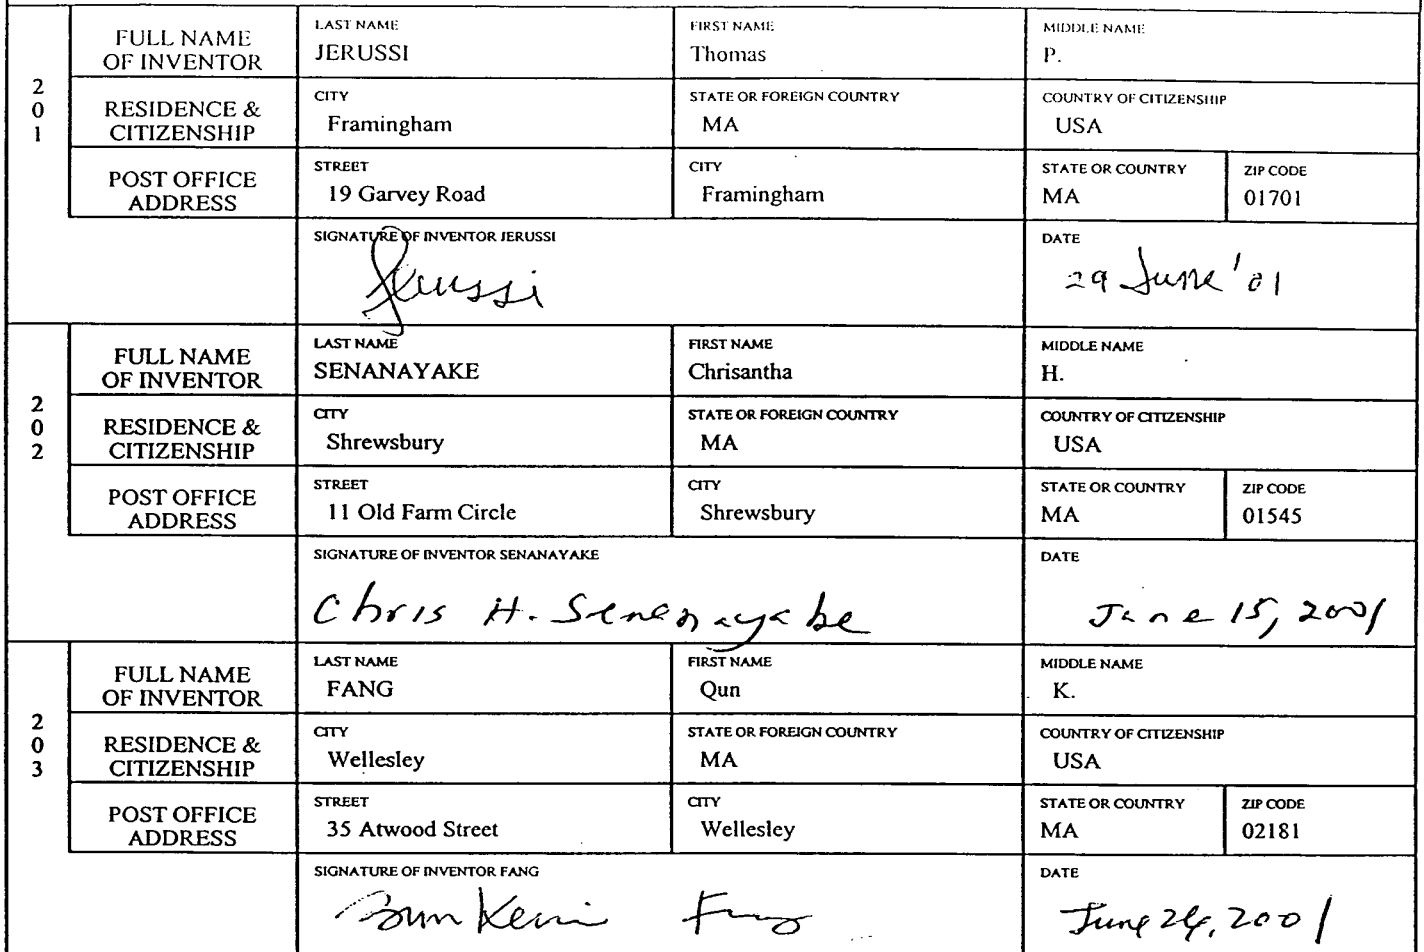 FULL NAME OF INVENTOR
LAST NAME
JERUSSI
FIRST NAME
Thomas
MIDDLE NAME
P.
201
RESIDENCE & CITIZENSHIP
CITY
Framingham
STATE OR FOREIGN COUNTRY
MA
COUNTRY OF CITIZENSHIP
USA
POST OFFICE ADDRESS
STREET
19 Garvey Road
CITY
Framingham
STATE OR COUNTRY
MA
ZIP CODE
01701
SIGNATURE OF INVENTOR JERUSSI
Jerussi
DATE
29 June '01
FULL NAME OF INVENTOR
LAST NAME
SENANAYAKE
FIRST NAME
Chrisantha
MIDDLE NAME
H.
202
RESIDENCE & CITIZENSHIP
CITY
Shrewsbury
STATE OR FOREIGN COUNTRY
MA
COUNTRY OF CITIZENSHIP
USA
POST OFFICE ADDRESS
STREET
11 Old Farm Circle
CITY
Shrewsbury
STATE OR COUNTRY
MA
ZIP CODE
01545
SIGNATURE OF INVENTOR SENANAYAKE
Chris H. Senanayake
DATE
June 15, 2001
FULL NAME OF INVENTOR
LAST NAME
FANG
FIRST NAME
Qun
MIDDLE NAME
K.
203
RESIDENCE & CITIZENSHIP
CITY
Wellesley
STATE OR FOREIGN COUNTRY
MA
COUNTRY OF CITIZENSHIP
USA
POST OFFICE ADDRESS
STREET
35 Atwood Street
CITY
Wellesley
STATE OR COUNTRY
MA
ZIP CODE
02181
SIGNATURE OF INVENTOR FANG
Kevin Fang
DATE
June 26, 2001